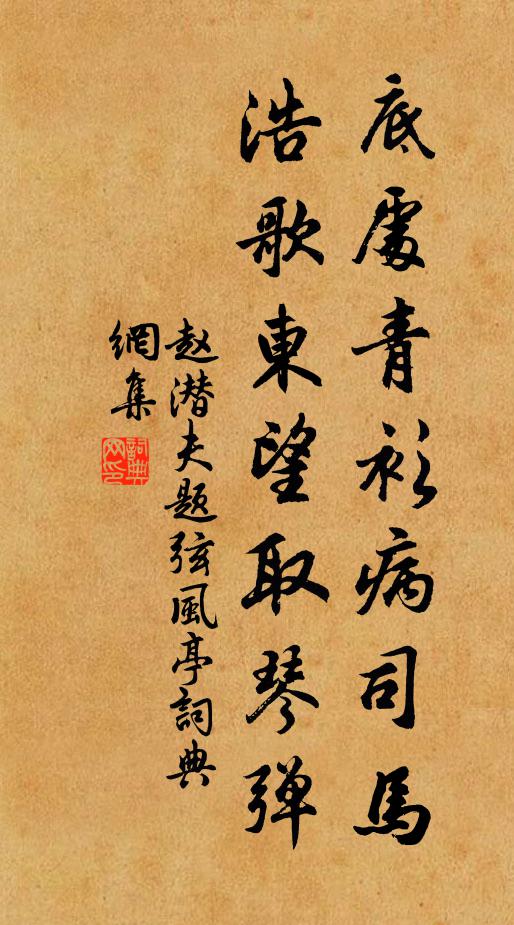 底處青衫病司馬
浩歌東望取琴弹
赵潜夫题弦風亭詞典
網集
詞典网印